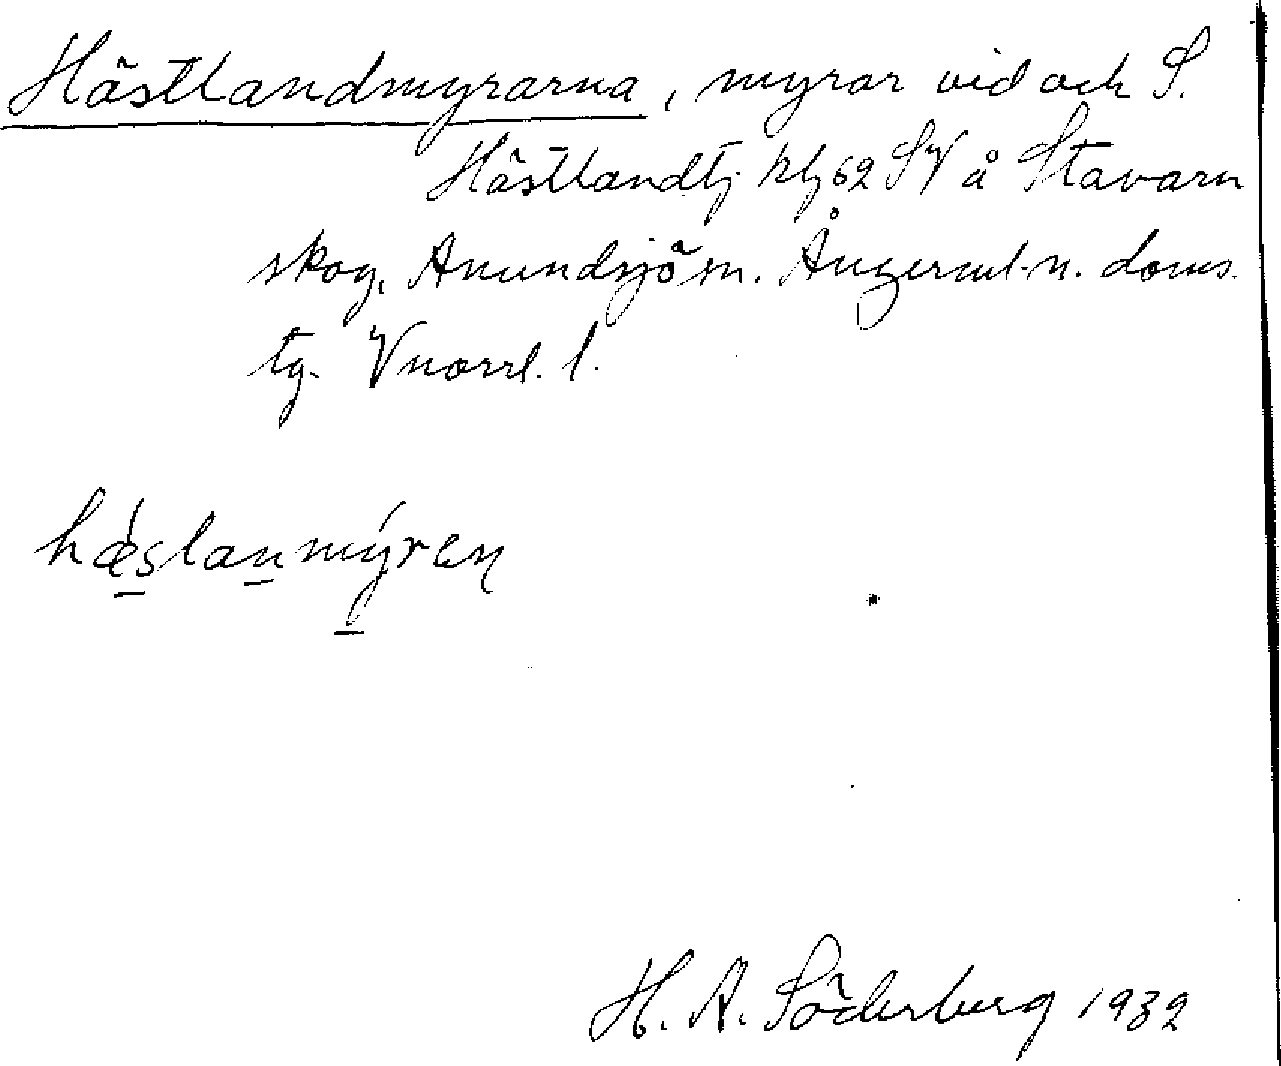 Hästlandmyrarna, myrar vid och S.
Hästlandtj kbl 62 SV å Stavarn
skog, Anundsjö sn. Ångerml. n. doms.
tg. Vnorrl. l.
hæslanmýren
H. A. Söderberg 1932